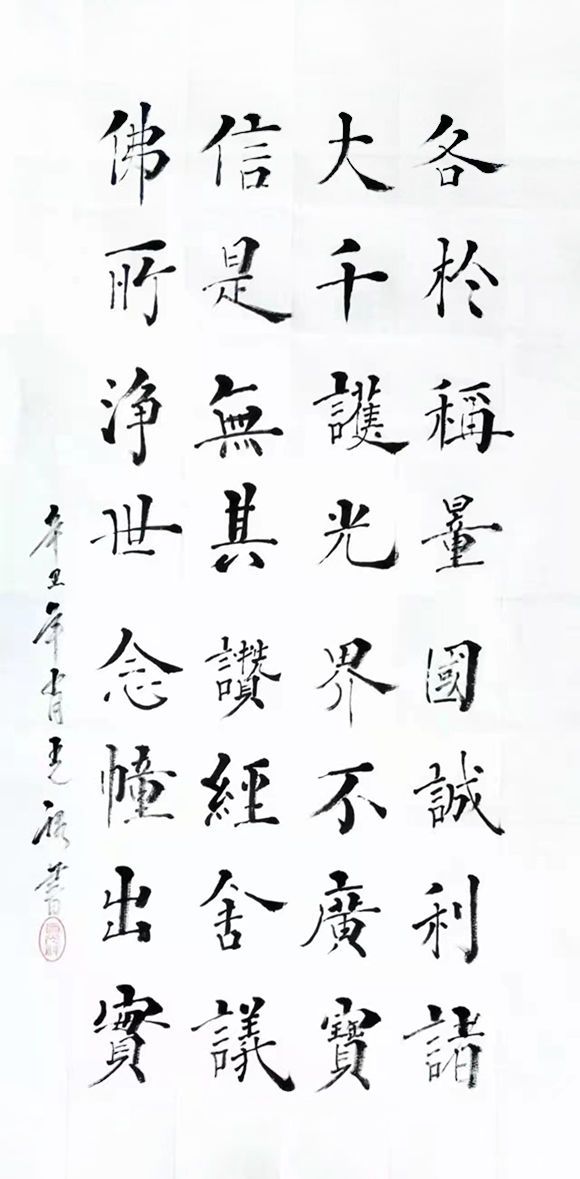 各於稱量國誠利諸
大千護光界不廣寶
信是無其讚經舍議
佛所淨世念幢出實
辛丑年肖書